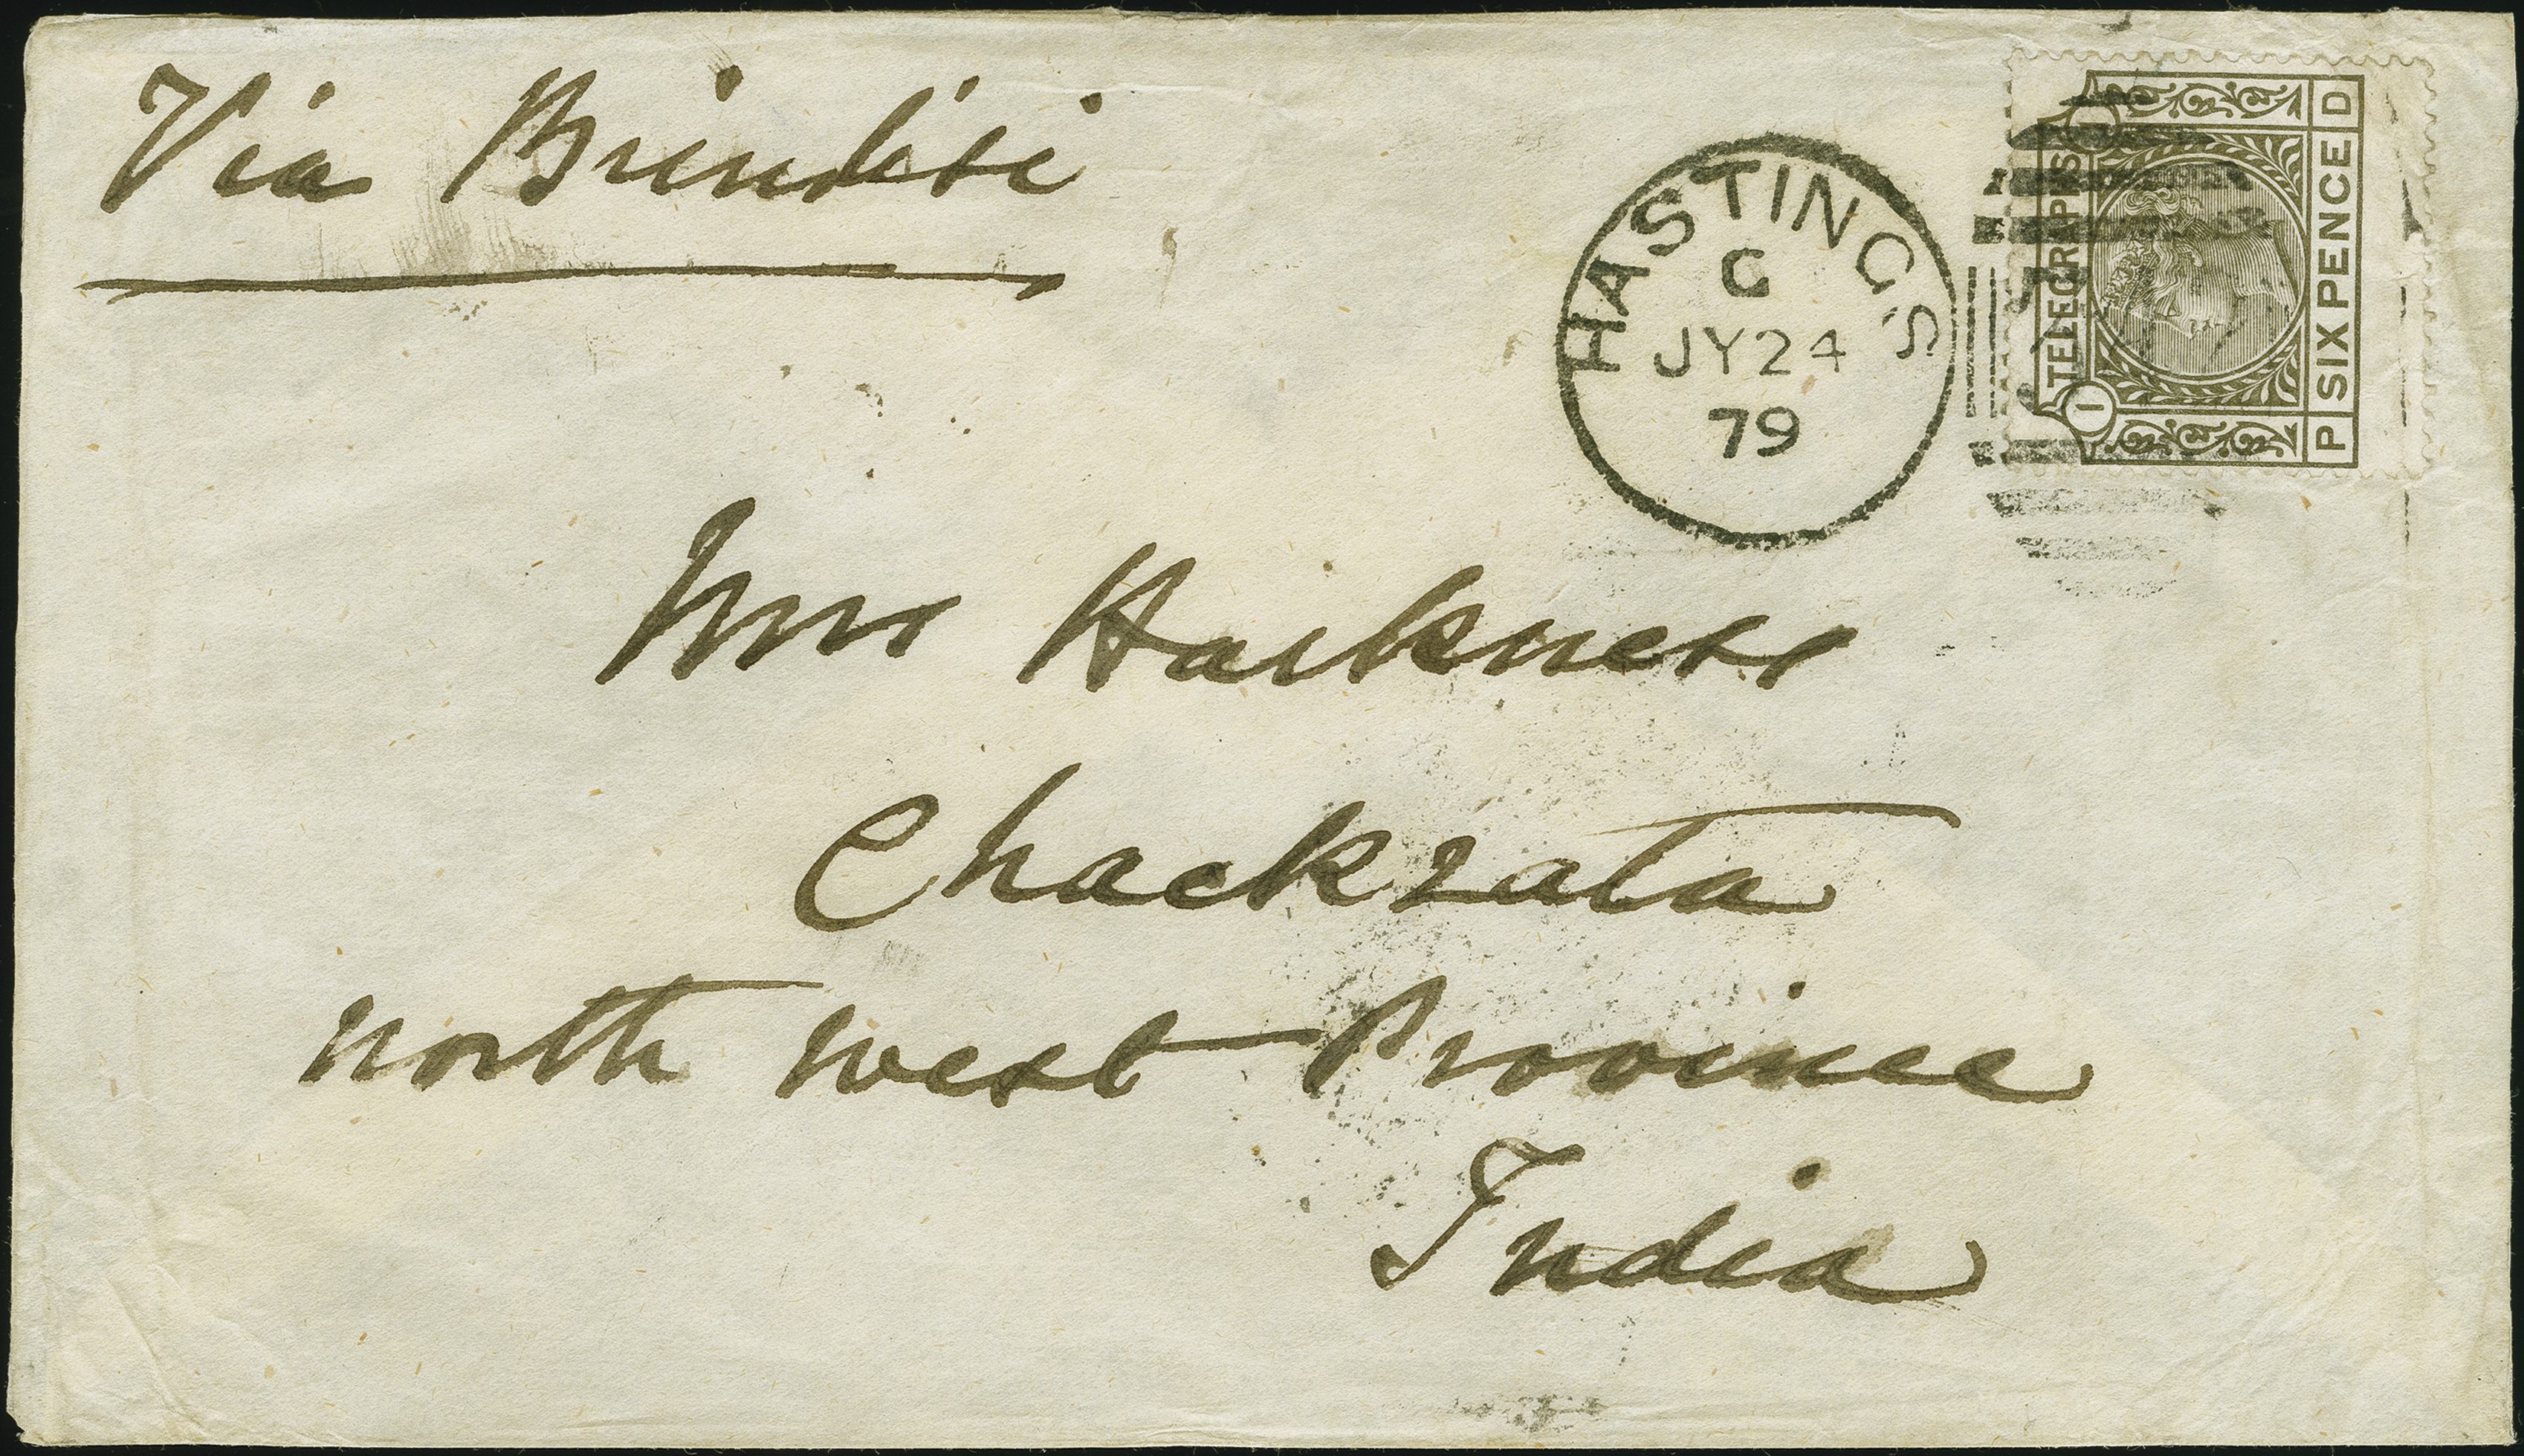 Via Brindisi
HASTINGS
G
JY24
79
TELEGRAPHS
SIX PENCE
P
D
1
Mrs Harkness
Chackrata
North West Province
India